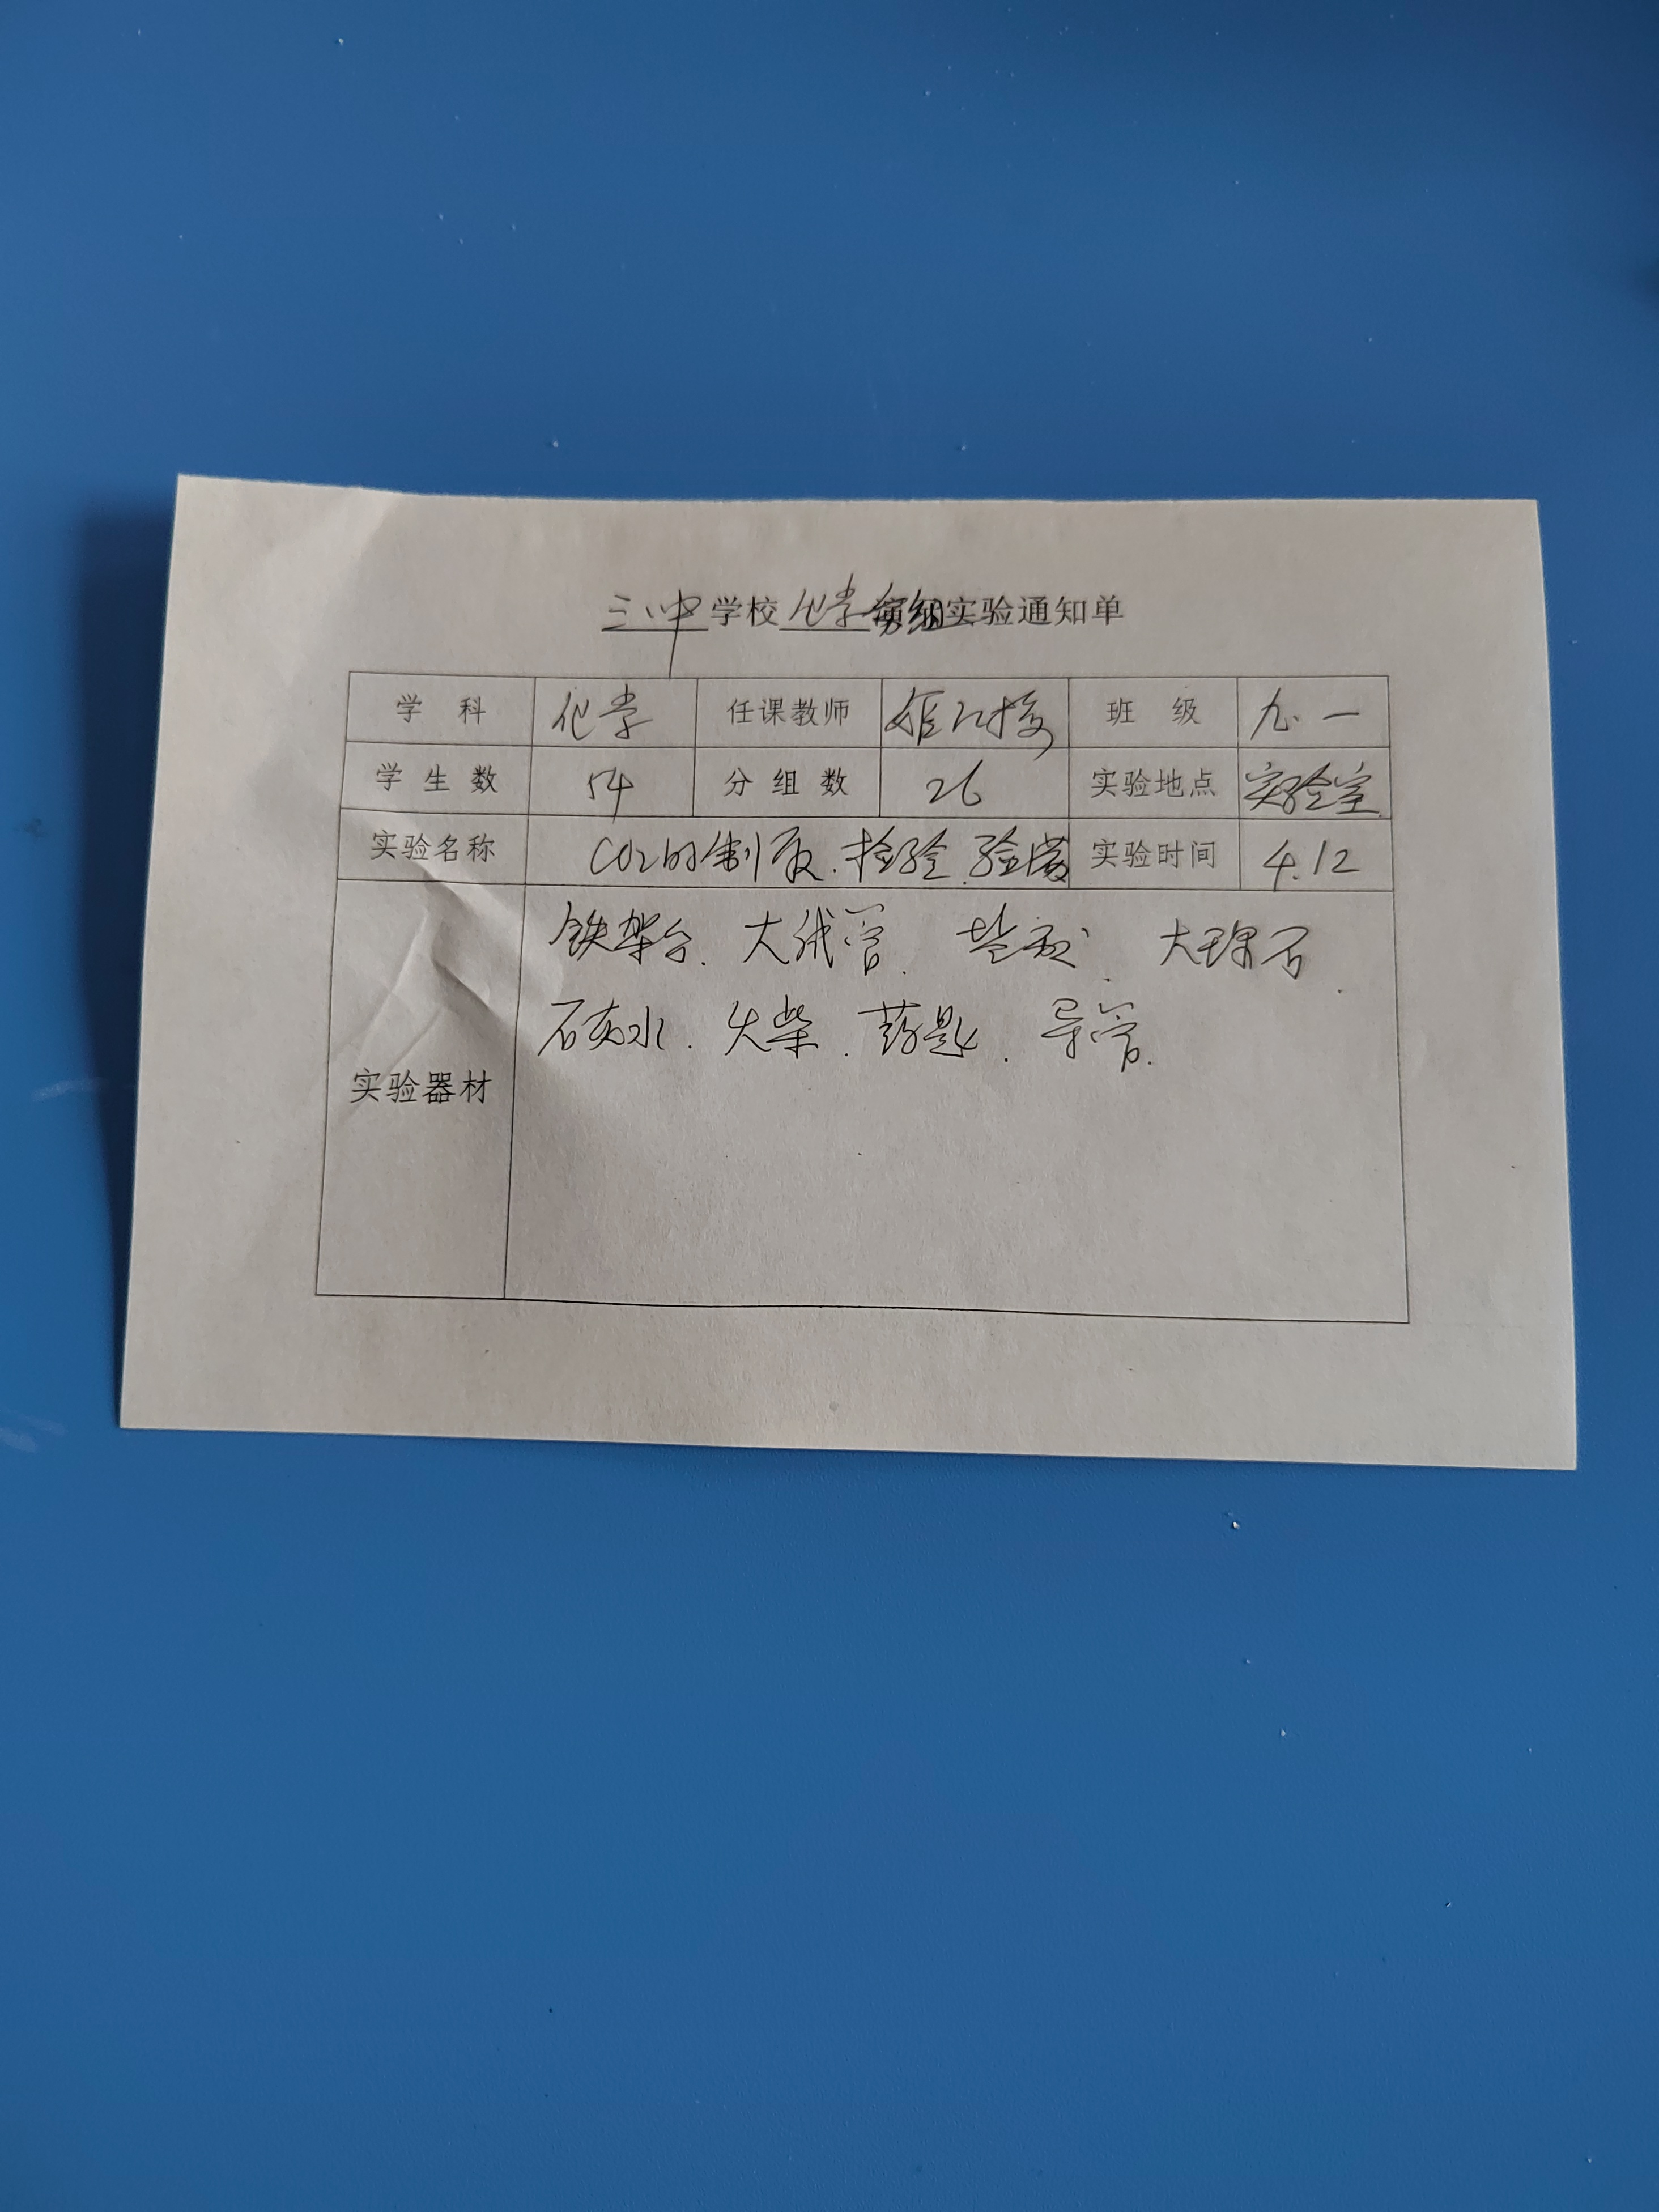 三中学校化学实验通知单
学 科 化学 任课教师 班 级 九.一
学 生 数 54 分 组 数 26 实验地点 实验室
实验名称 CO2的制取.检验.验满 实验时间 4.12
铁架台. 大试管. 盐酸. 大理石.
石灰水. 火柴. 药匙. 导管.
实验器材